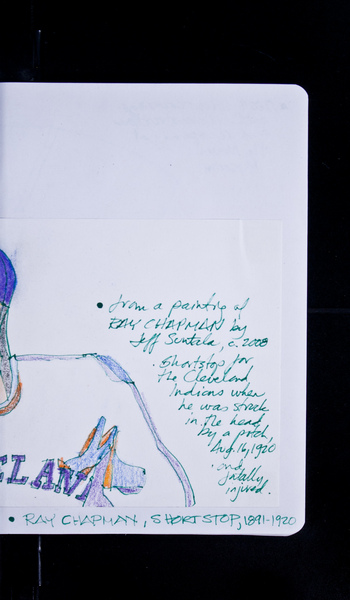 • from a painting of
RAY CHAPMAN by
Jeff Suntala, c. 2008
. Shortstop for
the Cleveland
Indians when
he was struck
in the head
by a pitch,
Aug. 16, 1920
. and
fatally
injured.
ELAN
• RAY CHAPMAN, SHORTSTOP, 1891-1920